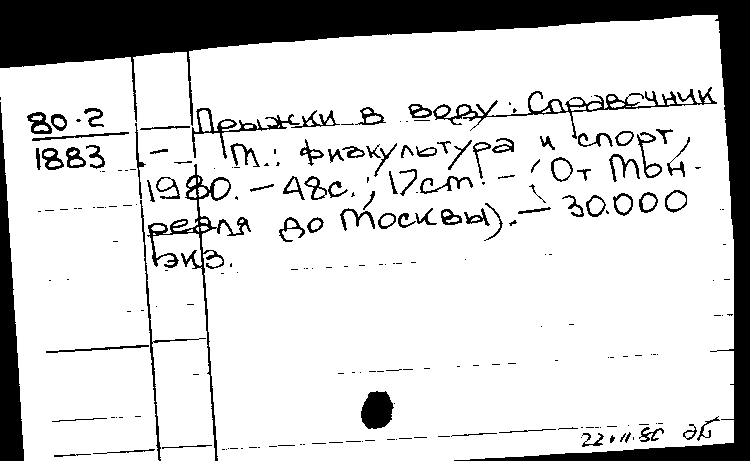 80-2
1883
Прыжки в воду: Справочник
.— М.: Физкультура и спорт,
1980.—48с.; 17см.—(От Мон-
реаля до Москвы).—30.000
экз.
22.11.80